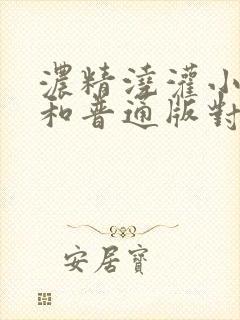 濃精澆灌小
和普通版對
安居寶